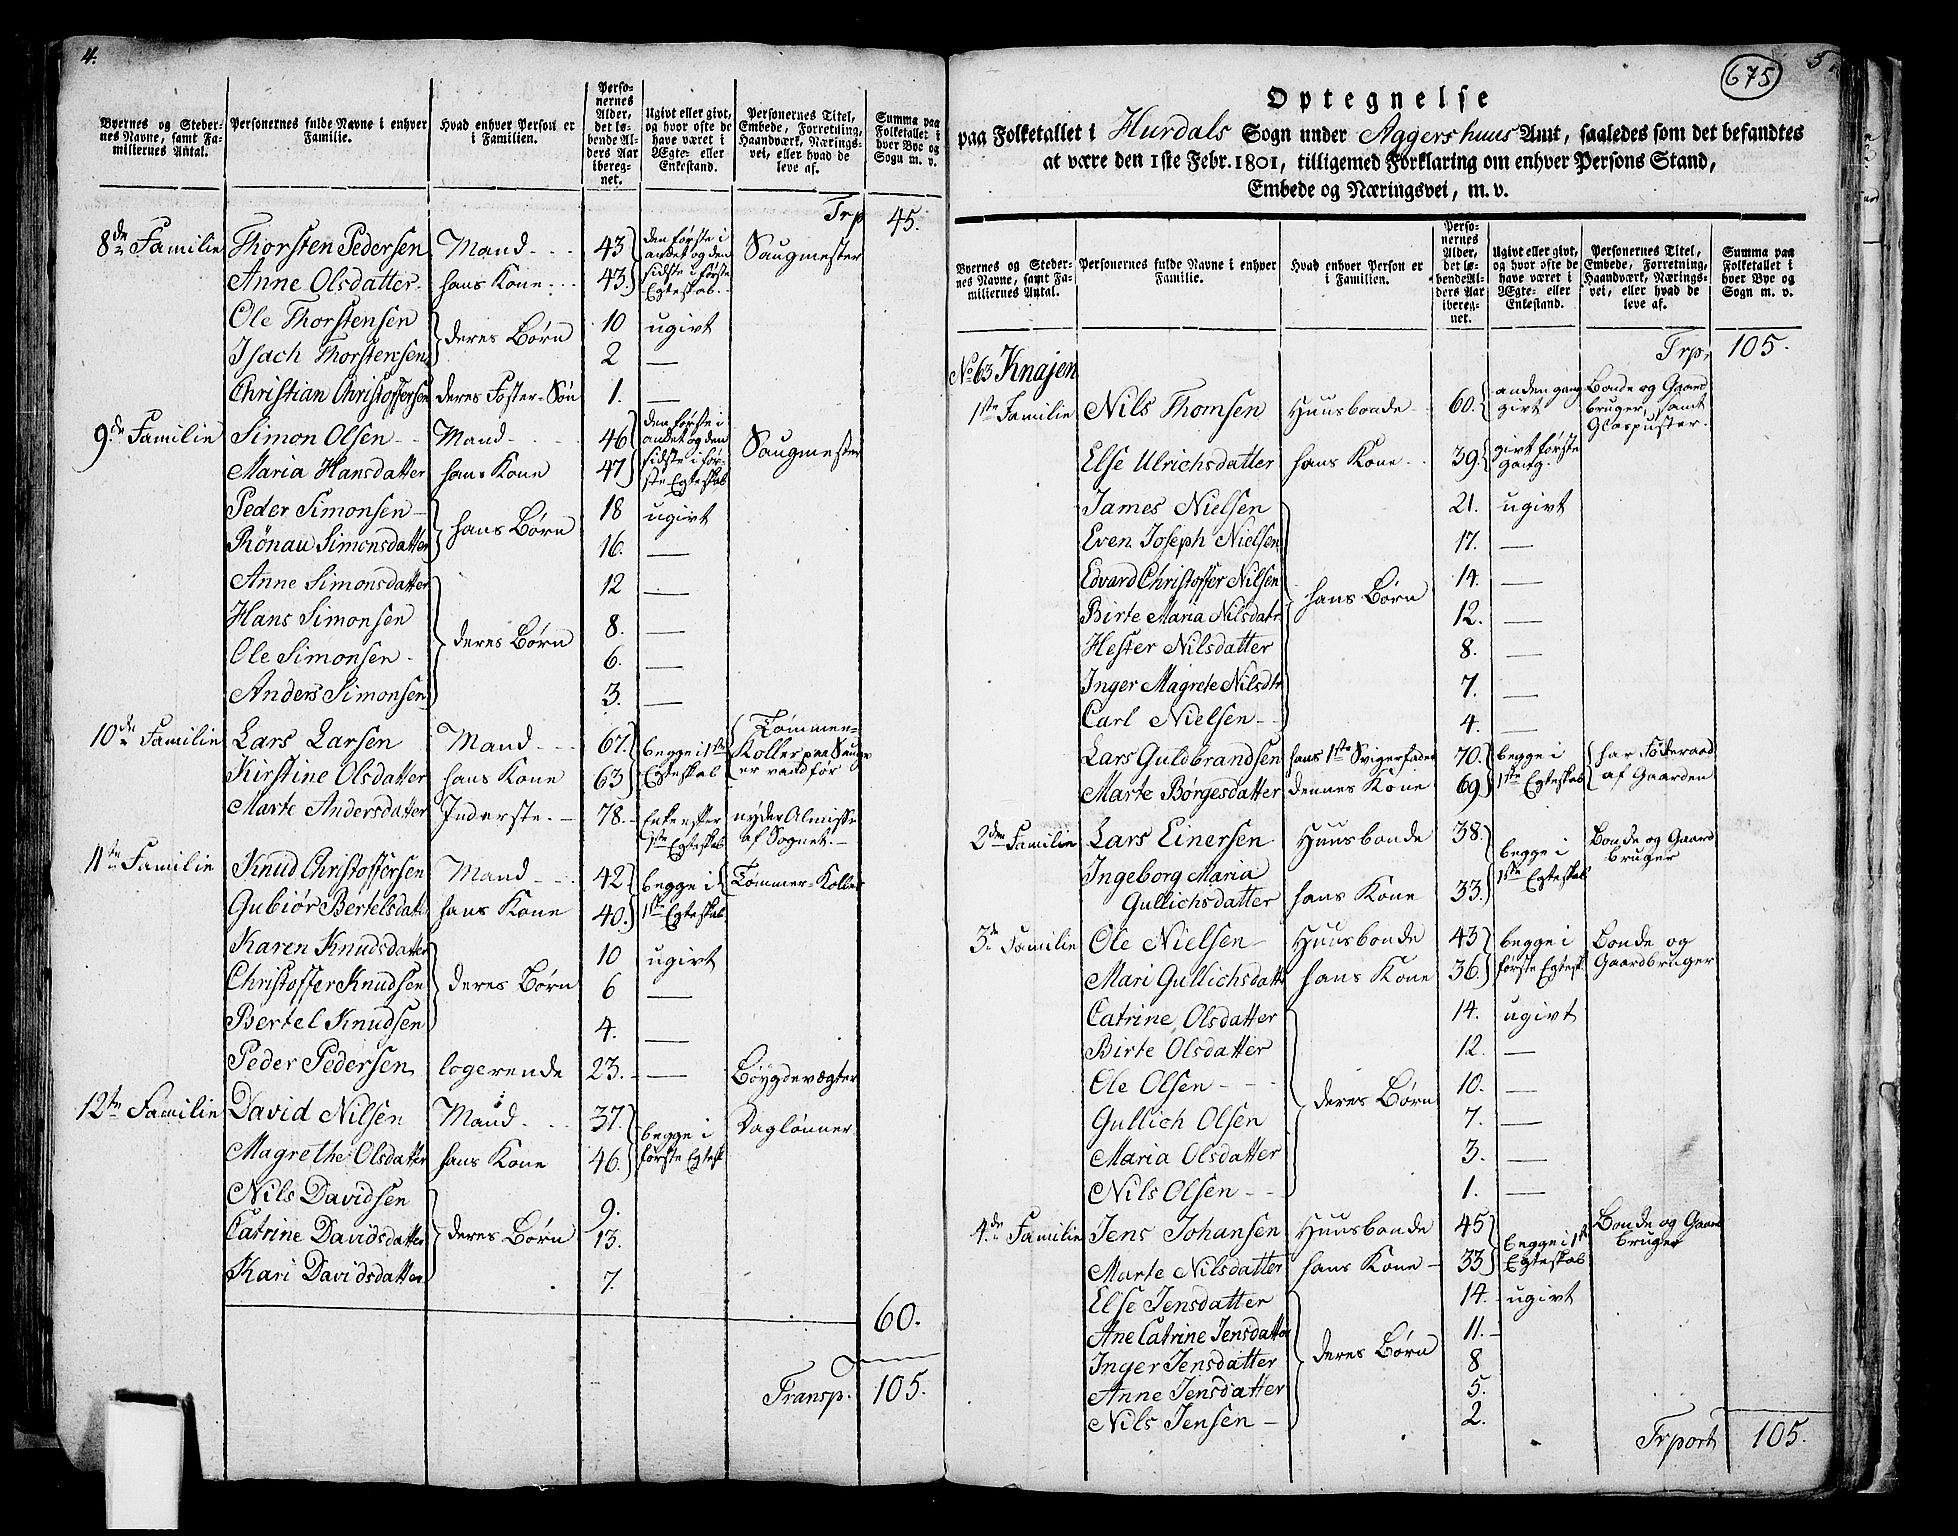 4.
Byernes og Steder-nes Navne, samt Fa-miliernes Antal.
Personernes fulde Navne i enhver Familie.
Hvad enhver Person er i Familien.
Perso-nernes Alder, det lø-bende Al-ders Aar iberegnet.
Ugivt eller givt, og hvor ofte de have været i Ægte- eller Enkestand.
Personernes Titel, Embede, Forretning, Haandværk, Nærings-vei, eller hvad de leve af.
Summa paa Folketallet i hver Bye og Sogn m. v.
Trp 45.
8de Familie Thorsten Pedersen Mand 43 den første i andet og den sidste i første Egteskab. Saugmester
Anne Olsdatter hans Kone 43
Ole Thorstensen deres Børn 10 ugivt
Isach Thorstensen 2 —
Christian Christoffersen deres Foster-Søn 1. —
9de Familie Simon Olsen Mand 46 den første i andet og den sidste i før-ste Egteskab Saugmester
Maria Hansdatter hans Kone 47
Peder Simonsen hans Børn 18 ugivt
Rönau Simonsdatter 16. —
Anne Simonsdatter deres Børn 12 —
Hans Simonsen 8. —
Ole Simonsen 6. —
Anders Simonsen 3. —
10de Familie Lars Larsen Mand 67. begge i 1ste Egteskab Tømmer-Koller paa Sauge
Kirstine Olsdatter hans Kone 63
Marte Andersdatter Inderste. 78. Enke efter 1ste Egteskab nyder Almisse af Sognet.
11te Familie Knud Christoffersen Mand 42 begge i 1ste Egteskab Tømmer-Koller
Gubiör Bertelsdatt hans Kone 40.
Karen Knudsdatter deres Børn 10 ugivt
Christoffer Knudsen 6 —
Bertel Knudsen 4. —
Peder Pedersen logerende 23. — Bøygdevægter
12te Familie David Nilsen Mand 37. begge i første Egtesk Daglønner
Magrethe Olsdatter hans Kone 46.
Nils Davidsen deres Børn 9.
Catrine Davidsdatter 13.
Kari Davidsdatter 7.
60.
Transp. 105.
675
5
Optegnelse
paa Folketallet i Hurdals Sogn under Aggershuus Amt, saaledes som det befandtes
at være den 1ste Febr. 1801, tilligemed Forklaring om enhver Persons Stand,
Embede og Næringsvei, m. v.
Byernes og Steder-nes Navne, samt Fa-miliernes Antal.
Personernes fulde Navne i enhver Familie.
Hvad enhver Person er i Familien.
Perso-nernes Alder, det lø-bende Al-ders Aar iberegnet.
Ugivt eller givt, og hvor ofte de have været i Ægte- eller Enkestand.
Personernes Titel, Embede, Forretning, Haandværk, Nærings-vei, eller hvad de leve af.
Summa paa Folketallet i hver Bye og Sogn m. v.
Trp. 105.
No 63 Knajen
1ste Familie Nils Thomsen Huusbonde 60. anden gang givt Bonde og Gaard bruger, samt Glaspuster.
Else Ulrichsdatter hans Kone 39. givt første gang.
James Nielsen hans Børn 21. ugivt
Even Joseph Nielsen 17. —
Edvard Christoffer Nilsen 14. —
Birte Maria Nilsdatr 12. —
Hester Nilsdatter 8. —
Inger Magrete Nilsdtr 7. —
Carl Nielsen 4. —
Lars Guldbrandsen hans 1ste Svigerfader 70. begge i 1ste Egteskab har Føderaad af Gaarden
Marte Børgesdatter dennes Kone 69
2den Familie Lars Einersen Huusbonde 38. begge i 1ste Egteskab Bonde og Gaard bruger
Ingeborg Maria
Gullichsdatter hans Kone 33.
3de Familie Ole Nielsen Huusbonde 43 begge i første Egtesk. Bonde og Gaardbruger
Mari Gullichsdatt hans Kone 36.
Catrine Olsdatter deres Børn 14. ugivt
Birte Olsdatter 12. —
Ole Olsen 10. —
Gullich Olsen 7. —
Maria Olsdatter 3. —
Nils Olsen 1. —
4de Familie Jens Johansen Huusbonde 45 begge i 1ste Egteskab Bonde og Gaard bruger
Marte Nilsdatter hans Kone 33
Else Jensdatter deres Børn 14. ugivt
Ane Catrine Jensdatter 11.
Inger Jensdatter 8
Anne Jensdatter 5.
Nils Jensen 2.
Trport 105.